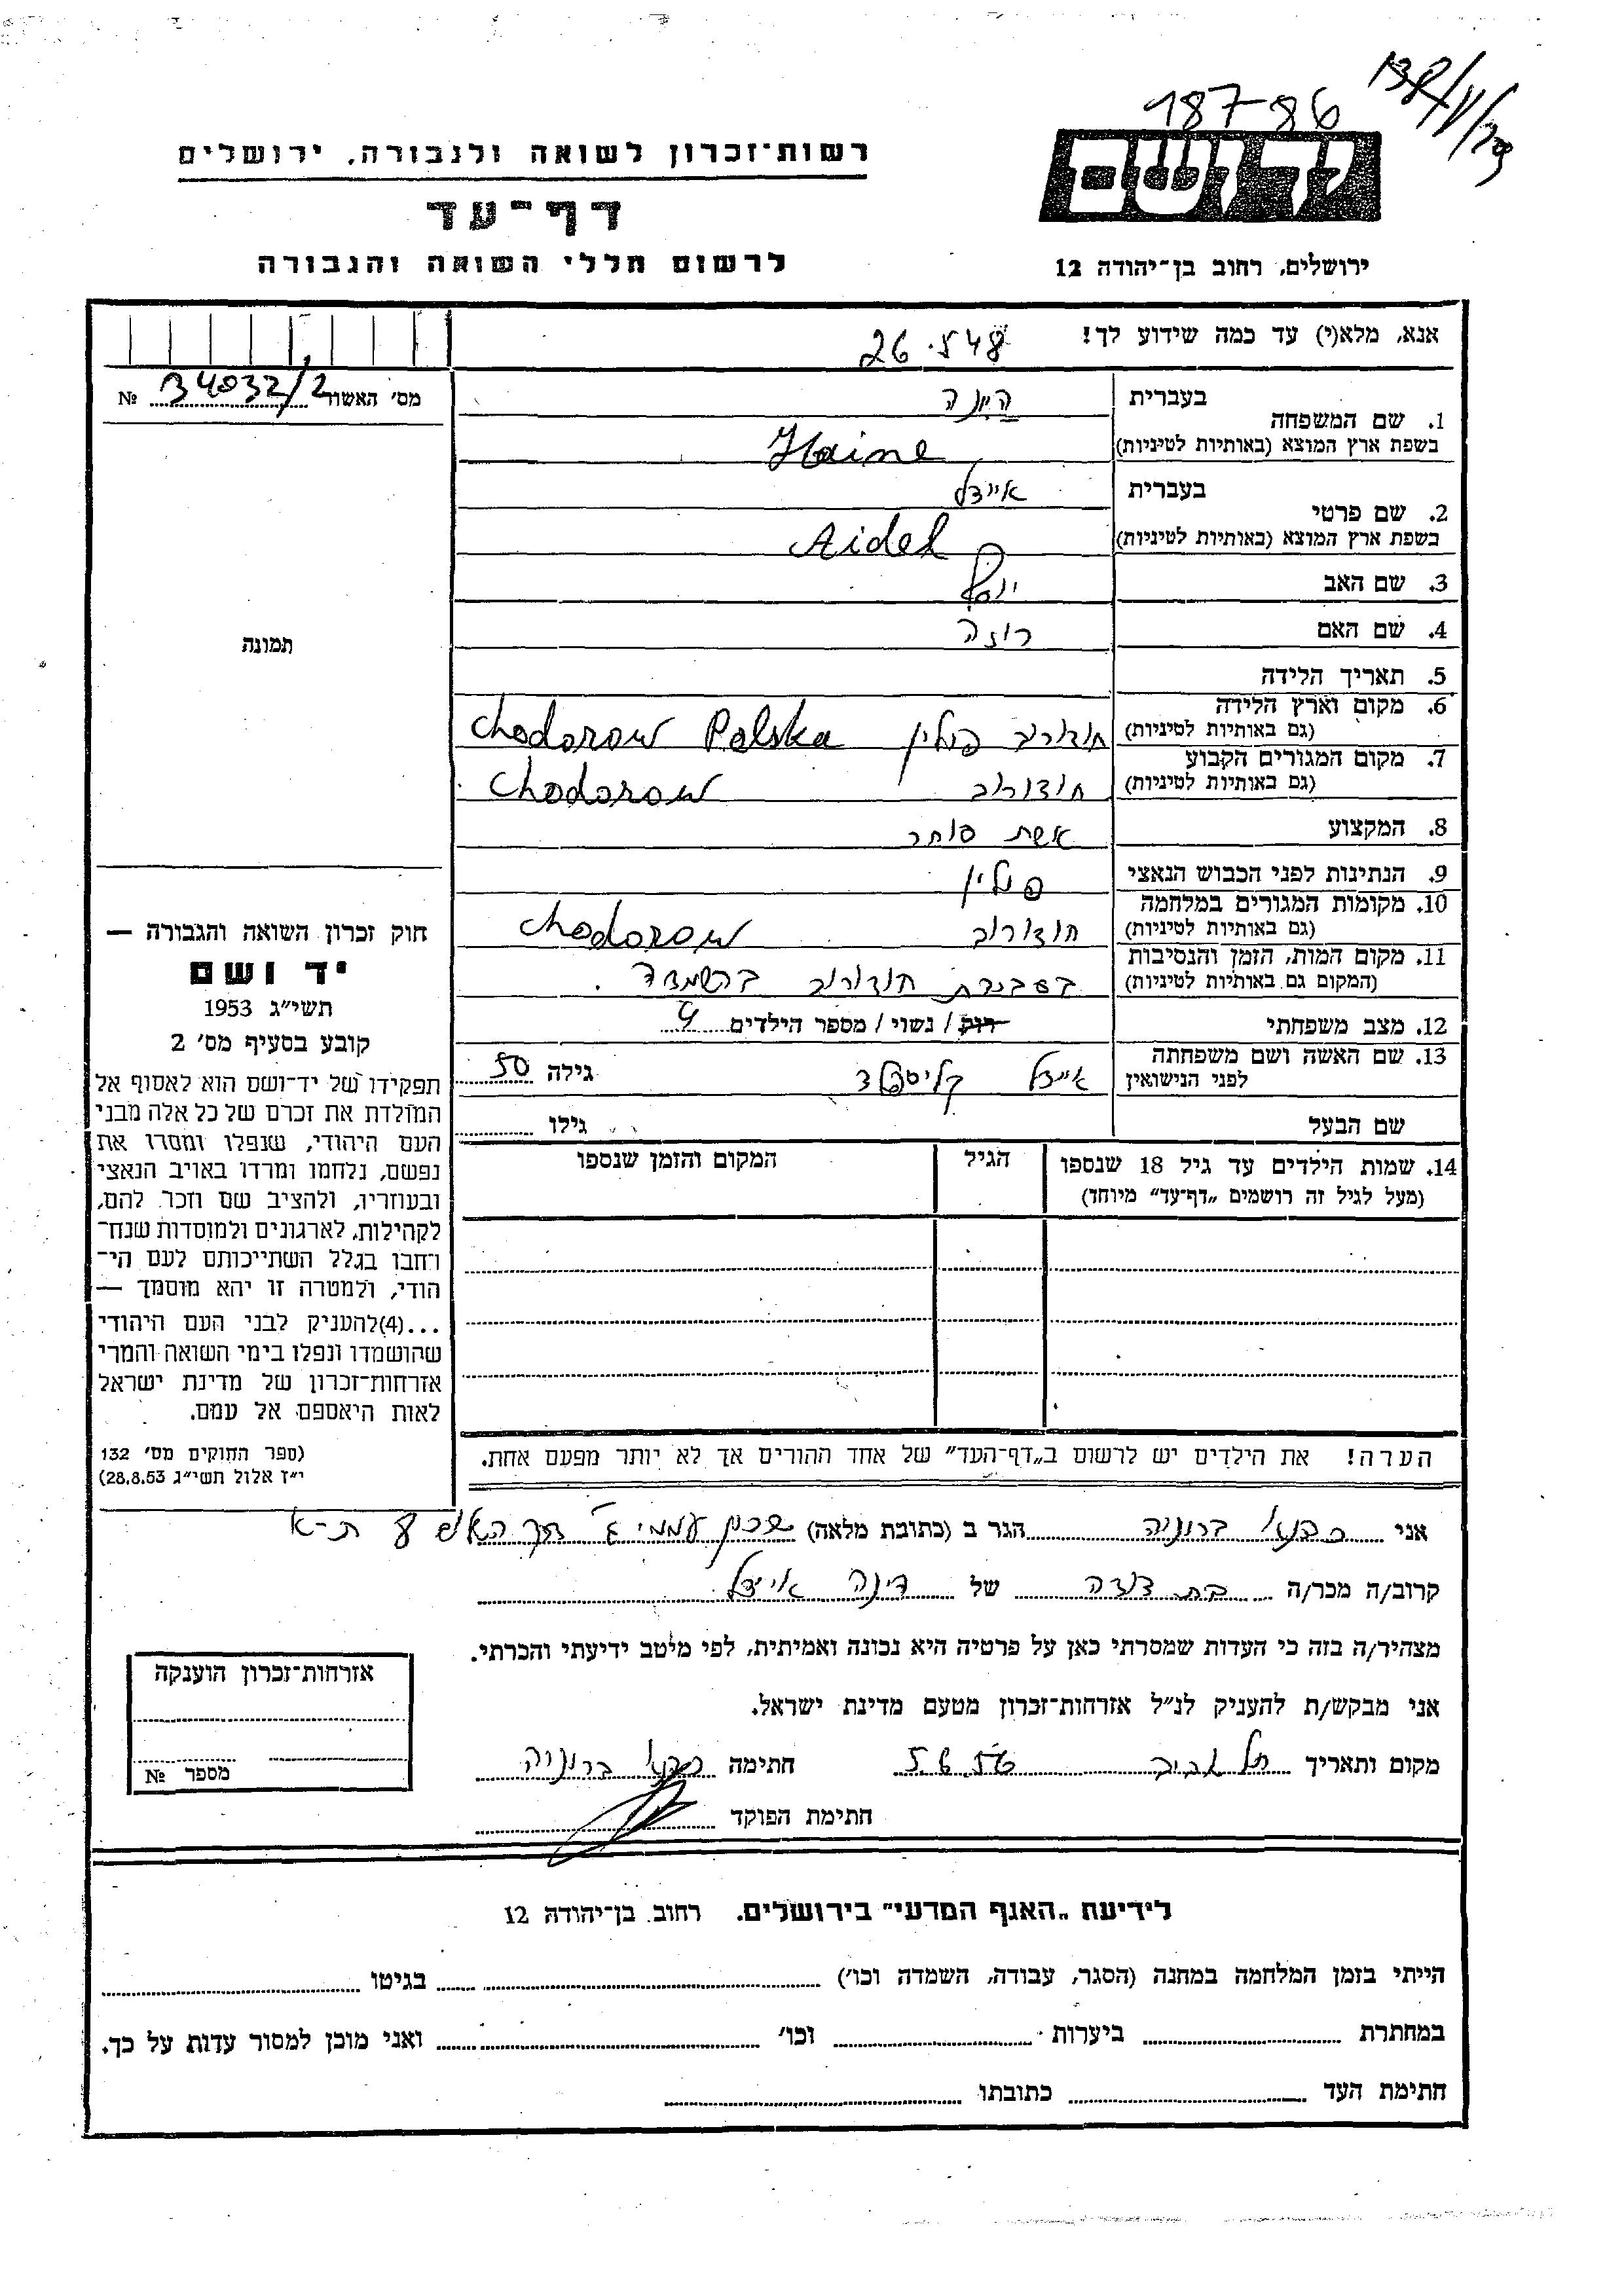 187-86
138/11/29
יד ושם
רשות־זכרון לשואה ולגבורה, ירושלים
דף־עד
לרשום חללי השואה והגבורה
ירושלים, רחוב בן־יהודה 12
אנא, מלא(י) עד כמה שידוע לך!
26.548
מס' האשור 34032/2 №
1. שם המשפחה
בעברית
היינה
בשפת ארץ המוצא (באותיות לטיניות)
Haine
2. שם פרטי
בעברית
איידל
בשפת ארץ המוצא (באותיות לטיניות)
Aidel
3. שם האב
יוסף
4. שם האם
רוזה
5. תאריך הלידה
6. מקום וארץ הלידה
(גם באותיות לטיניות)
חודורוב פולין Chodorow Polska
7. מקום המגורים הקבוע
(גם באותיות לטיניות)
חודורוב Chodorow
8. המקצוע
אשת סוחר
9. הנתינות לפני הכבוש הנאצי
פולין
10. מקומות המגורים במלחמה
(גם באותיות לטיניות)
חודורוב Chodorow
11. מקום המות, הזמן והנסיבות
(המקום גם באותיות לטיניות)
בסביבת חודורוב בהשמדה.
12. מצב משפחתי
רווק / נשוי / מספר הילדים 4
13. שם האשה ושם משפחתה
לפני הנישואין
איידל קליספלד גילה 50
שם הבעל גילו
14. שמות הילדים עד גיל 18 שנספו
(מעל לגיל זה רושמים „דף־עד" מיוחד)
הגיל
המקום והזמן שנספו
הערה! את הילדים יש לרשום ב„דף־העד" של אחד ההורים אך לא יותר מפעם אחת.
תמונה
חוק זכרון השואה והגבורה —
יד ושם
תשי"ג 1953
קובע בסעיף מס' 2
תפקידו של יד־ושם הוא לאסוף אל
המולדת את זכרם של כל אלה מבני
העם היהודי, שנפלו ומסרו את
נפשם, נלחמו ומרדו באויב הנאצי
ובעוזריו, ולהציב שם וזכר להם,
לקהילות, לארגונים ולמוסדות שנח־
רחבו בגלל השתייכותם לעם הי־
הודי, ולמטרה זו יהא מוסמך —
...(4)להעניק לבני העם היהודי
שהושמדו ונפלו בימי השואה והמרי
אזרחות־זכרון של מדינת ישראל
לאות היאספם אל עמם.
(ספר החוקים מס' 132
י"ז אלול תשי"ג 28.8.53)
אני ברוניה הגר ב (כתובת מלאה) שכון עממי ג' ת-א
קרוב/ה מכר/ה בת דודה של היינה איידל
מצהיר/ה בזה כי העדות שמסרתי כאן על פרטיה היא נכונה ואמיתית, לפי מיטב ידיעתי והכרתי.
אני מבקש/ת להעניק לנ"ל אזרחות־זכרון מטעם מדינת ישראל.
מקום ותאריך תל אביב 5.6.56 חתימה ברוניה
חתימת הפוקד
אזרחות־זכרון הוענקה
מספר №
לידיעת „האגף המדעי" בירושלים. רחוב בן־יהודה 12
הייתי בזמן המלחמה במחנה (הסגר, עבודה, השמדה וכו') בגיטו
במחתרת ביערות וכו' ואני מוכן למסור עדות על כך.
חתימת העד כתובתו